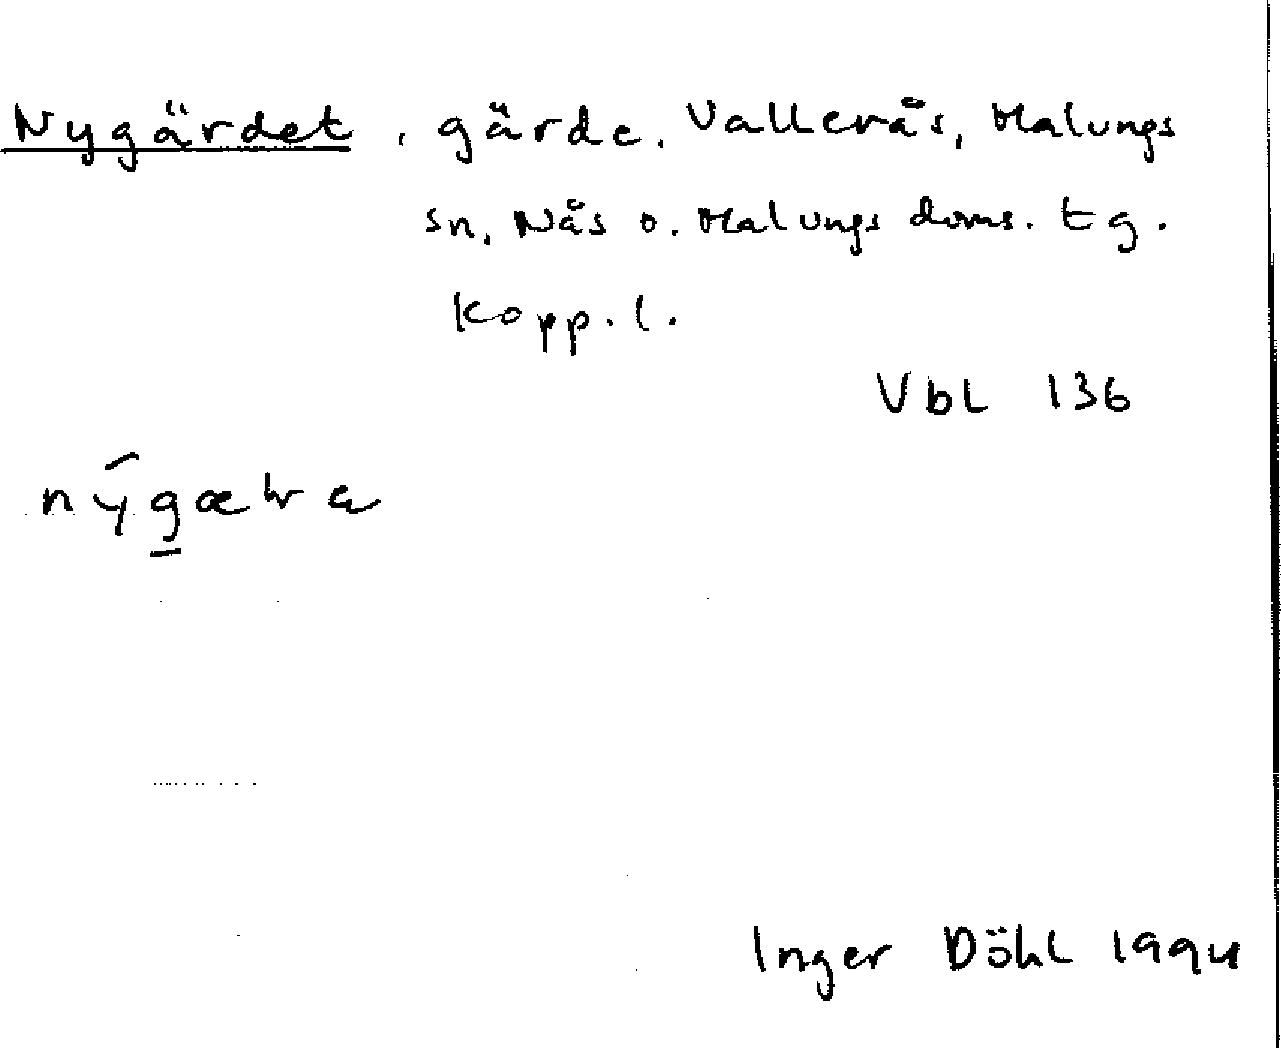 Nygärdet, gärde, Vallerås, Malungs
sn, Näs o. Malungs doms. tg.
Kopp. l.
VbL 136
Inger Döhl 1994